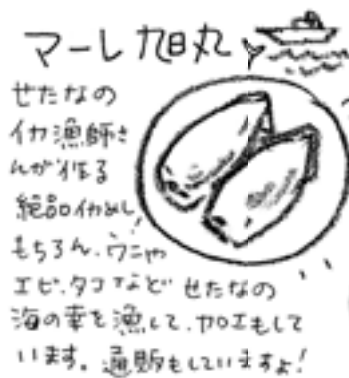 マーレ旭丸
せたなの
イカ漁師さ
んが作る
絶品イカめし!
もちろん、ウニや
エビ、タコなど せたなの
海の幸を漁して、加工もして
います。通販もしていますよ!